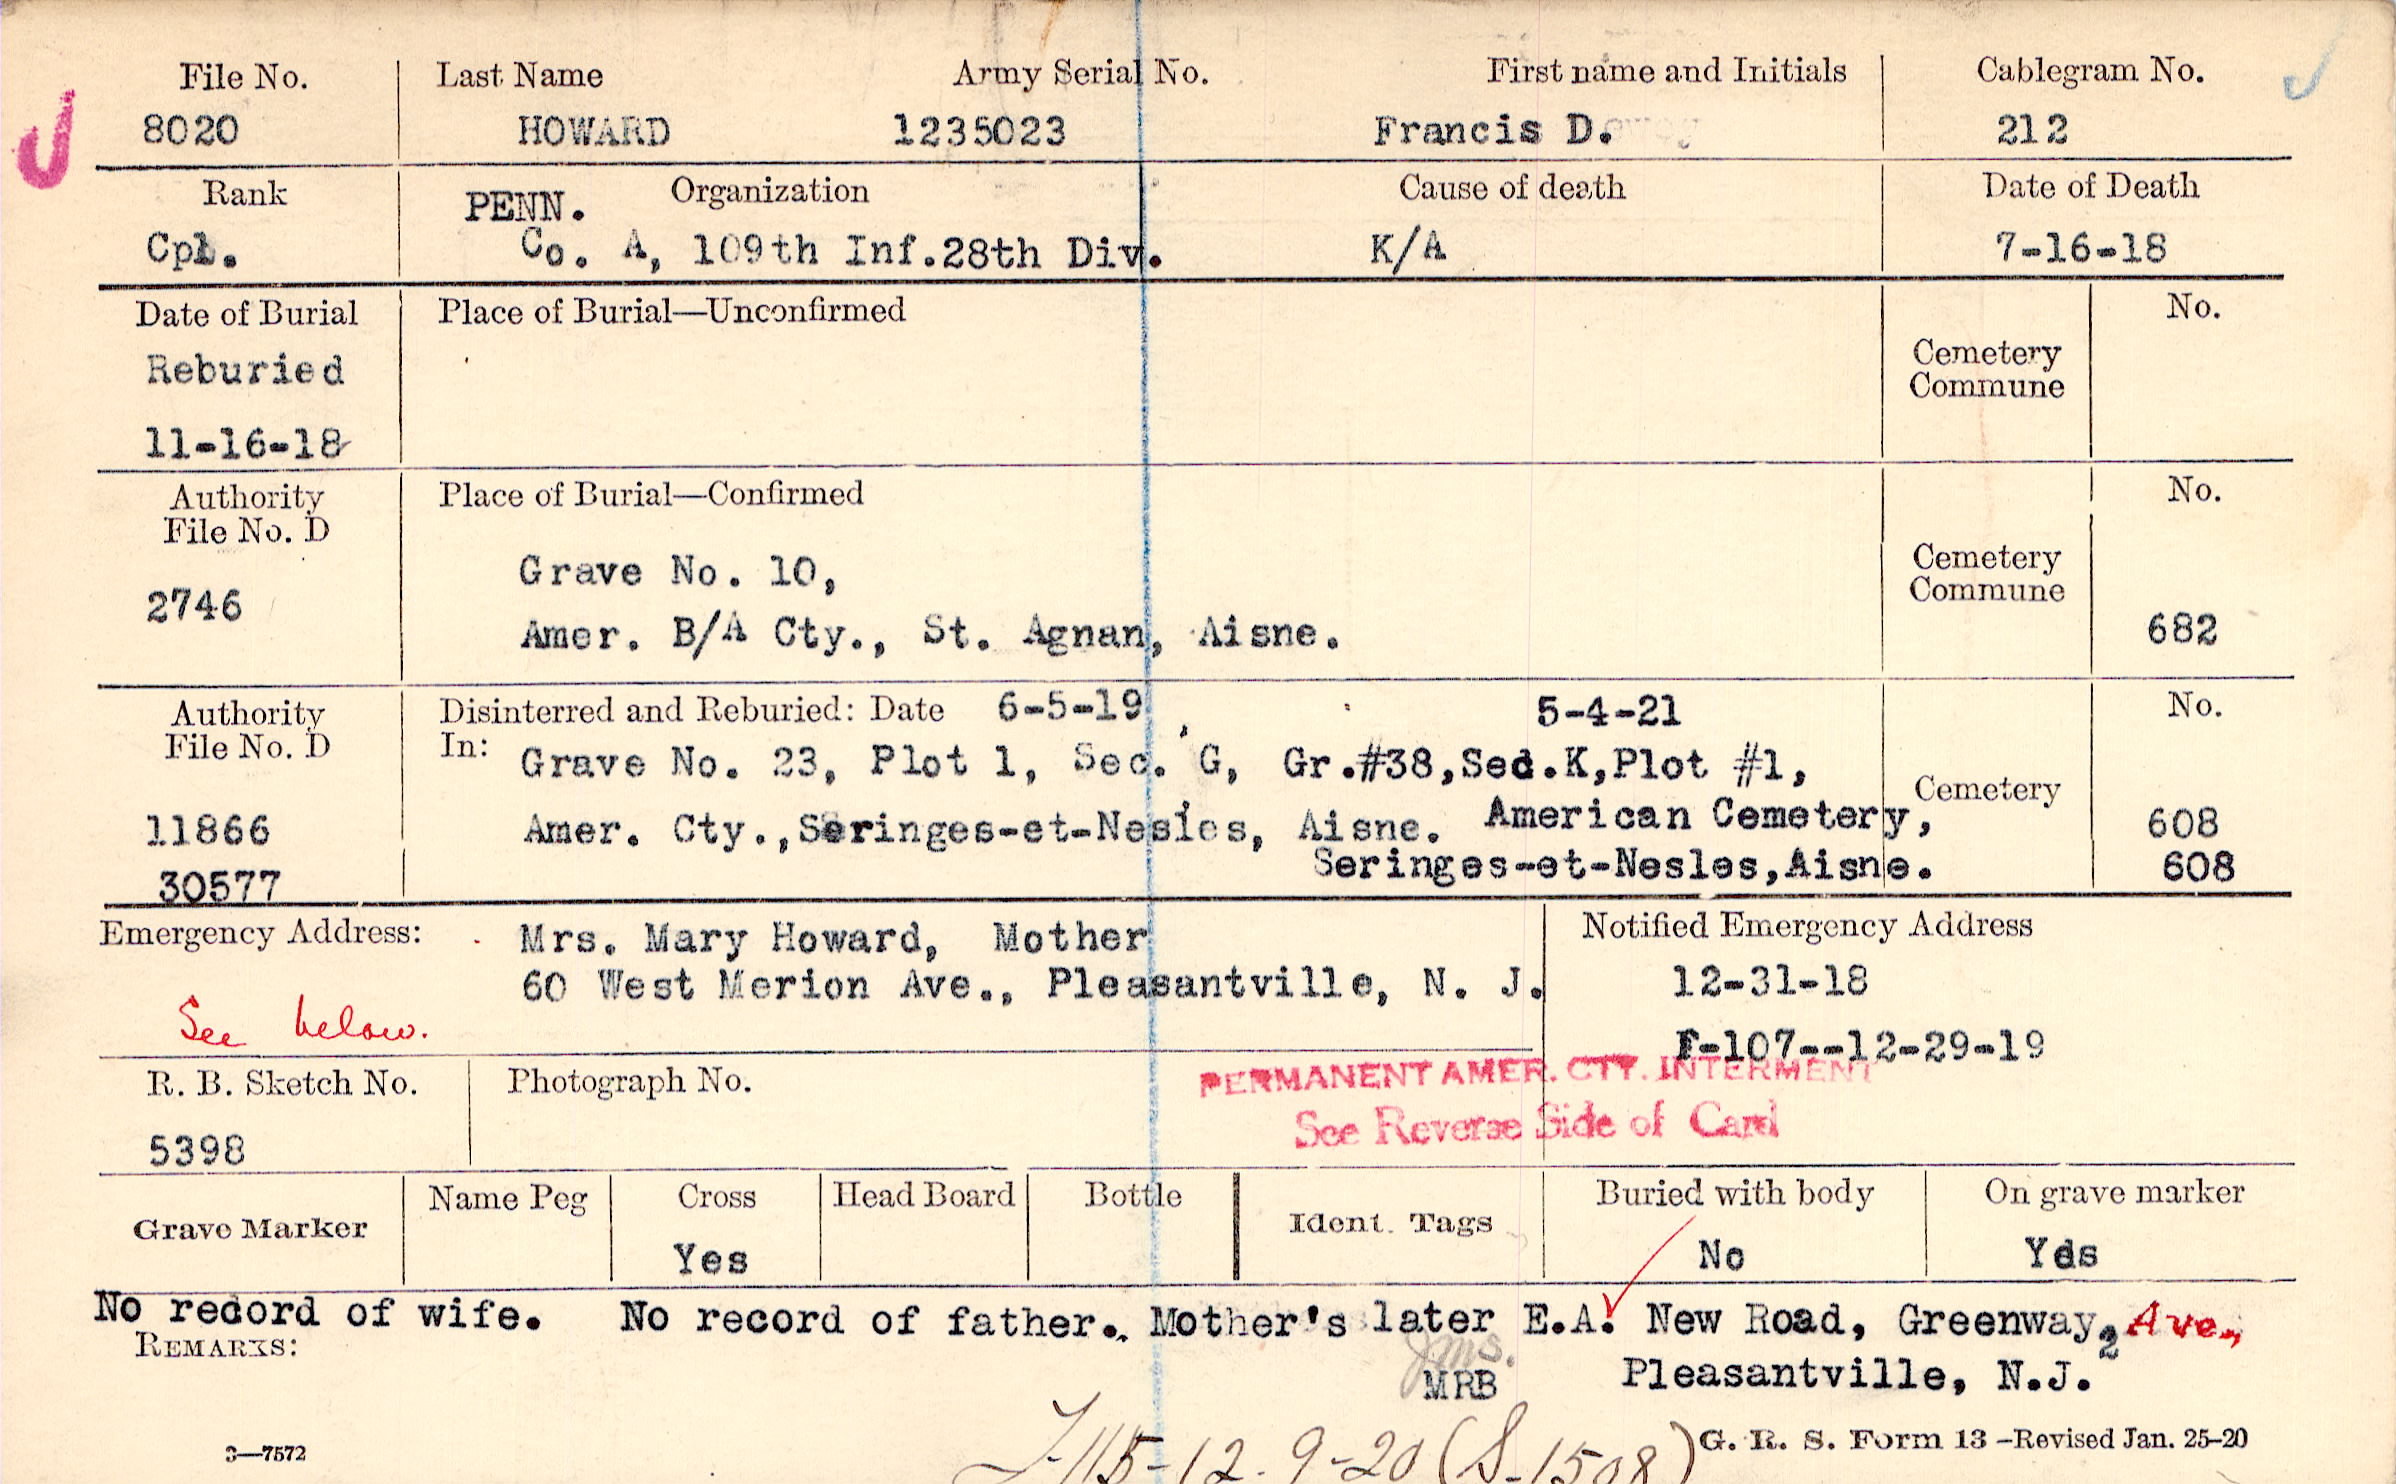 File No. Last Name Army Serial No. First name and Initials Cablegram No.
8020 HOWARD 1235023 Francis D. 212
Rank PENN. Organization Cause of death Date of Death
Cpl. Co. A, 109th Inf.28th Div. K/A 7-16-18
Date of Burial Place of Burial—Unconfirmed No.
Reburied Cemetery
Commune
11-16-18
Authority Place of Burial—Confirmed No.
File No. D
Grave No. 10, Cemetery
2746 Commune
Amer. B/A Cty., St. Agnan, Aisne. 682
Authority Disinterred and Reburied: Date 6-5-19 5-4-21 No.
File No. D In: Grave No. 23, Plot 1, Sec. G, Gr.#38,Sec.K,Plot #1,
Cemetery
11866 Amer. Cty.,Seringes-et-Nesles, Aisne. American Cemetery, 608
30577 Seringes-et-Nesles,Aisne. 608
Emergency Address: Mrs. Mary Howard, Mother Notified Emergency Address
60 West Merion Ave., Pleasantville, N. J. 12-31-18
See below. F-107--12-29-19
R. B. Sketch No. Photograph No. PERMANENT AMER. CTY. INTERMENT
See Reverse Side of Card
5398
Grave Marker Name Peg Cross Head Board Bottle Ident. Tags Buried with body On grave marker
Yes No Yes
No record of wife. No record of father. Mother's later E.A. New Road, Greenway, Ave.,
REMARKS: Jms.
MRB Pleasantville, N.J.
3—7572 G. R. S. Form 13 –Revised Jan. 25–20
-12-9-20 (S-1508)